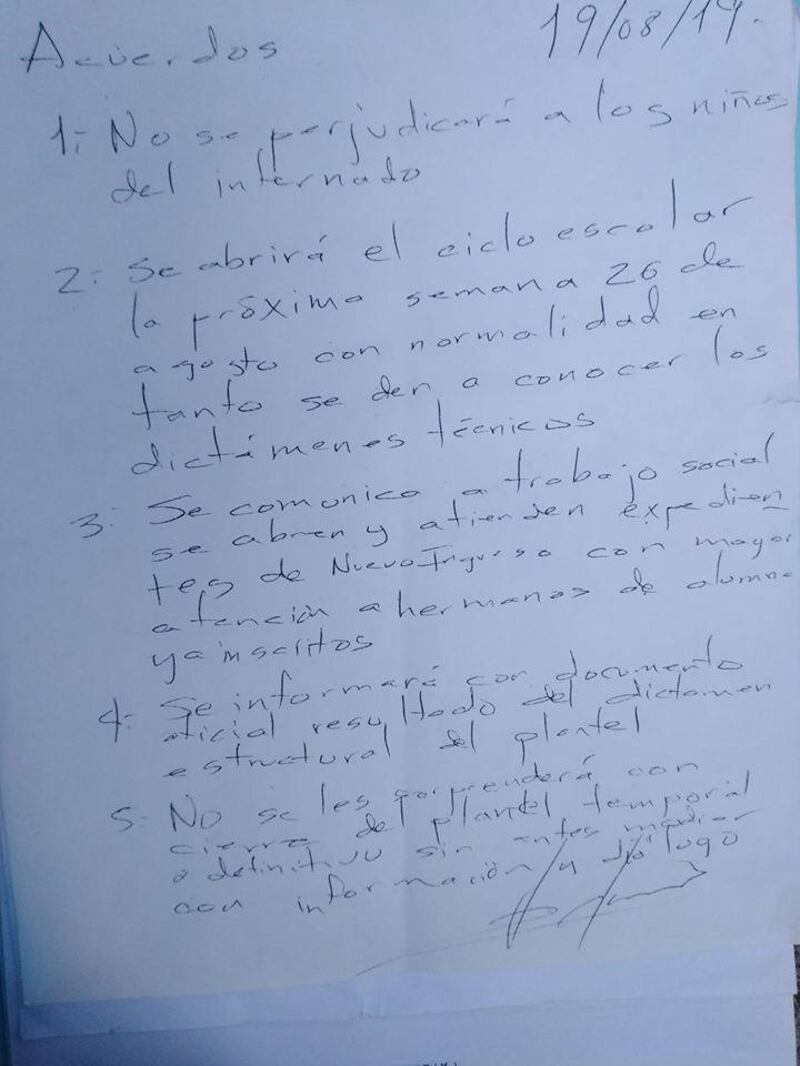 Acuerdos
19/08/19.
1:- No se perjudicará a los niños
del internado
2: Se abrirá el ciclo escolar
la próxima semana 26 de
agosto con normalidad en
tanto se den a conocer los
dictámenes técnicos
3: Se comunica a trabajo social
se abren y atienden expedien
tes de Nuevo Ingreso con mayor
atención a hermanos de alumno
ya inscritos
4: Se informará con documento
oficial resultado del dictamen
estructural del plantel
5: No se les sorprenderá con
cierre del plantel temporal
o definitivo sin antes mediar
con información y diálogo